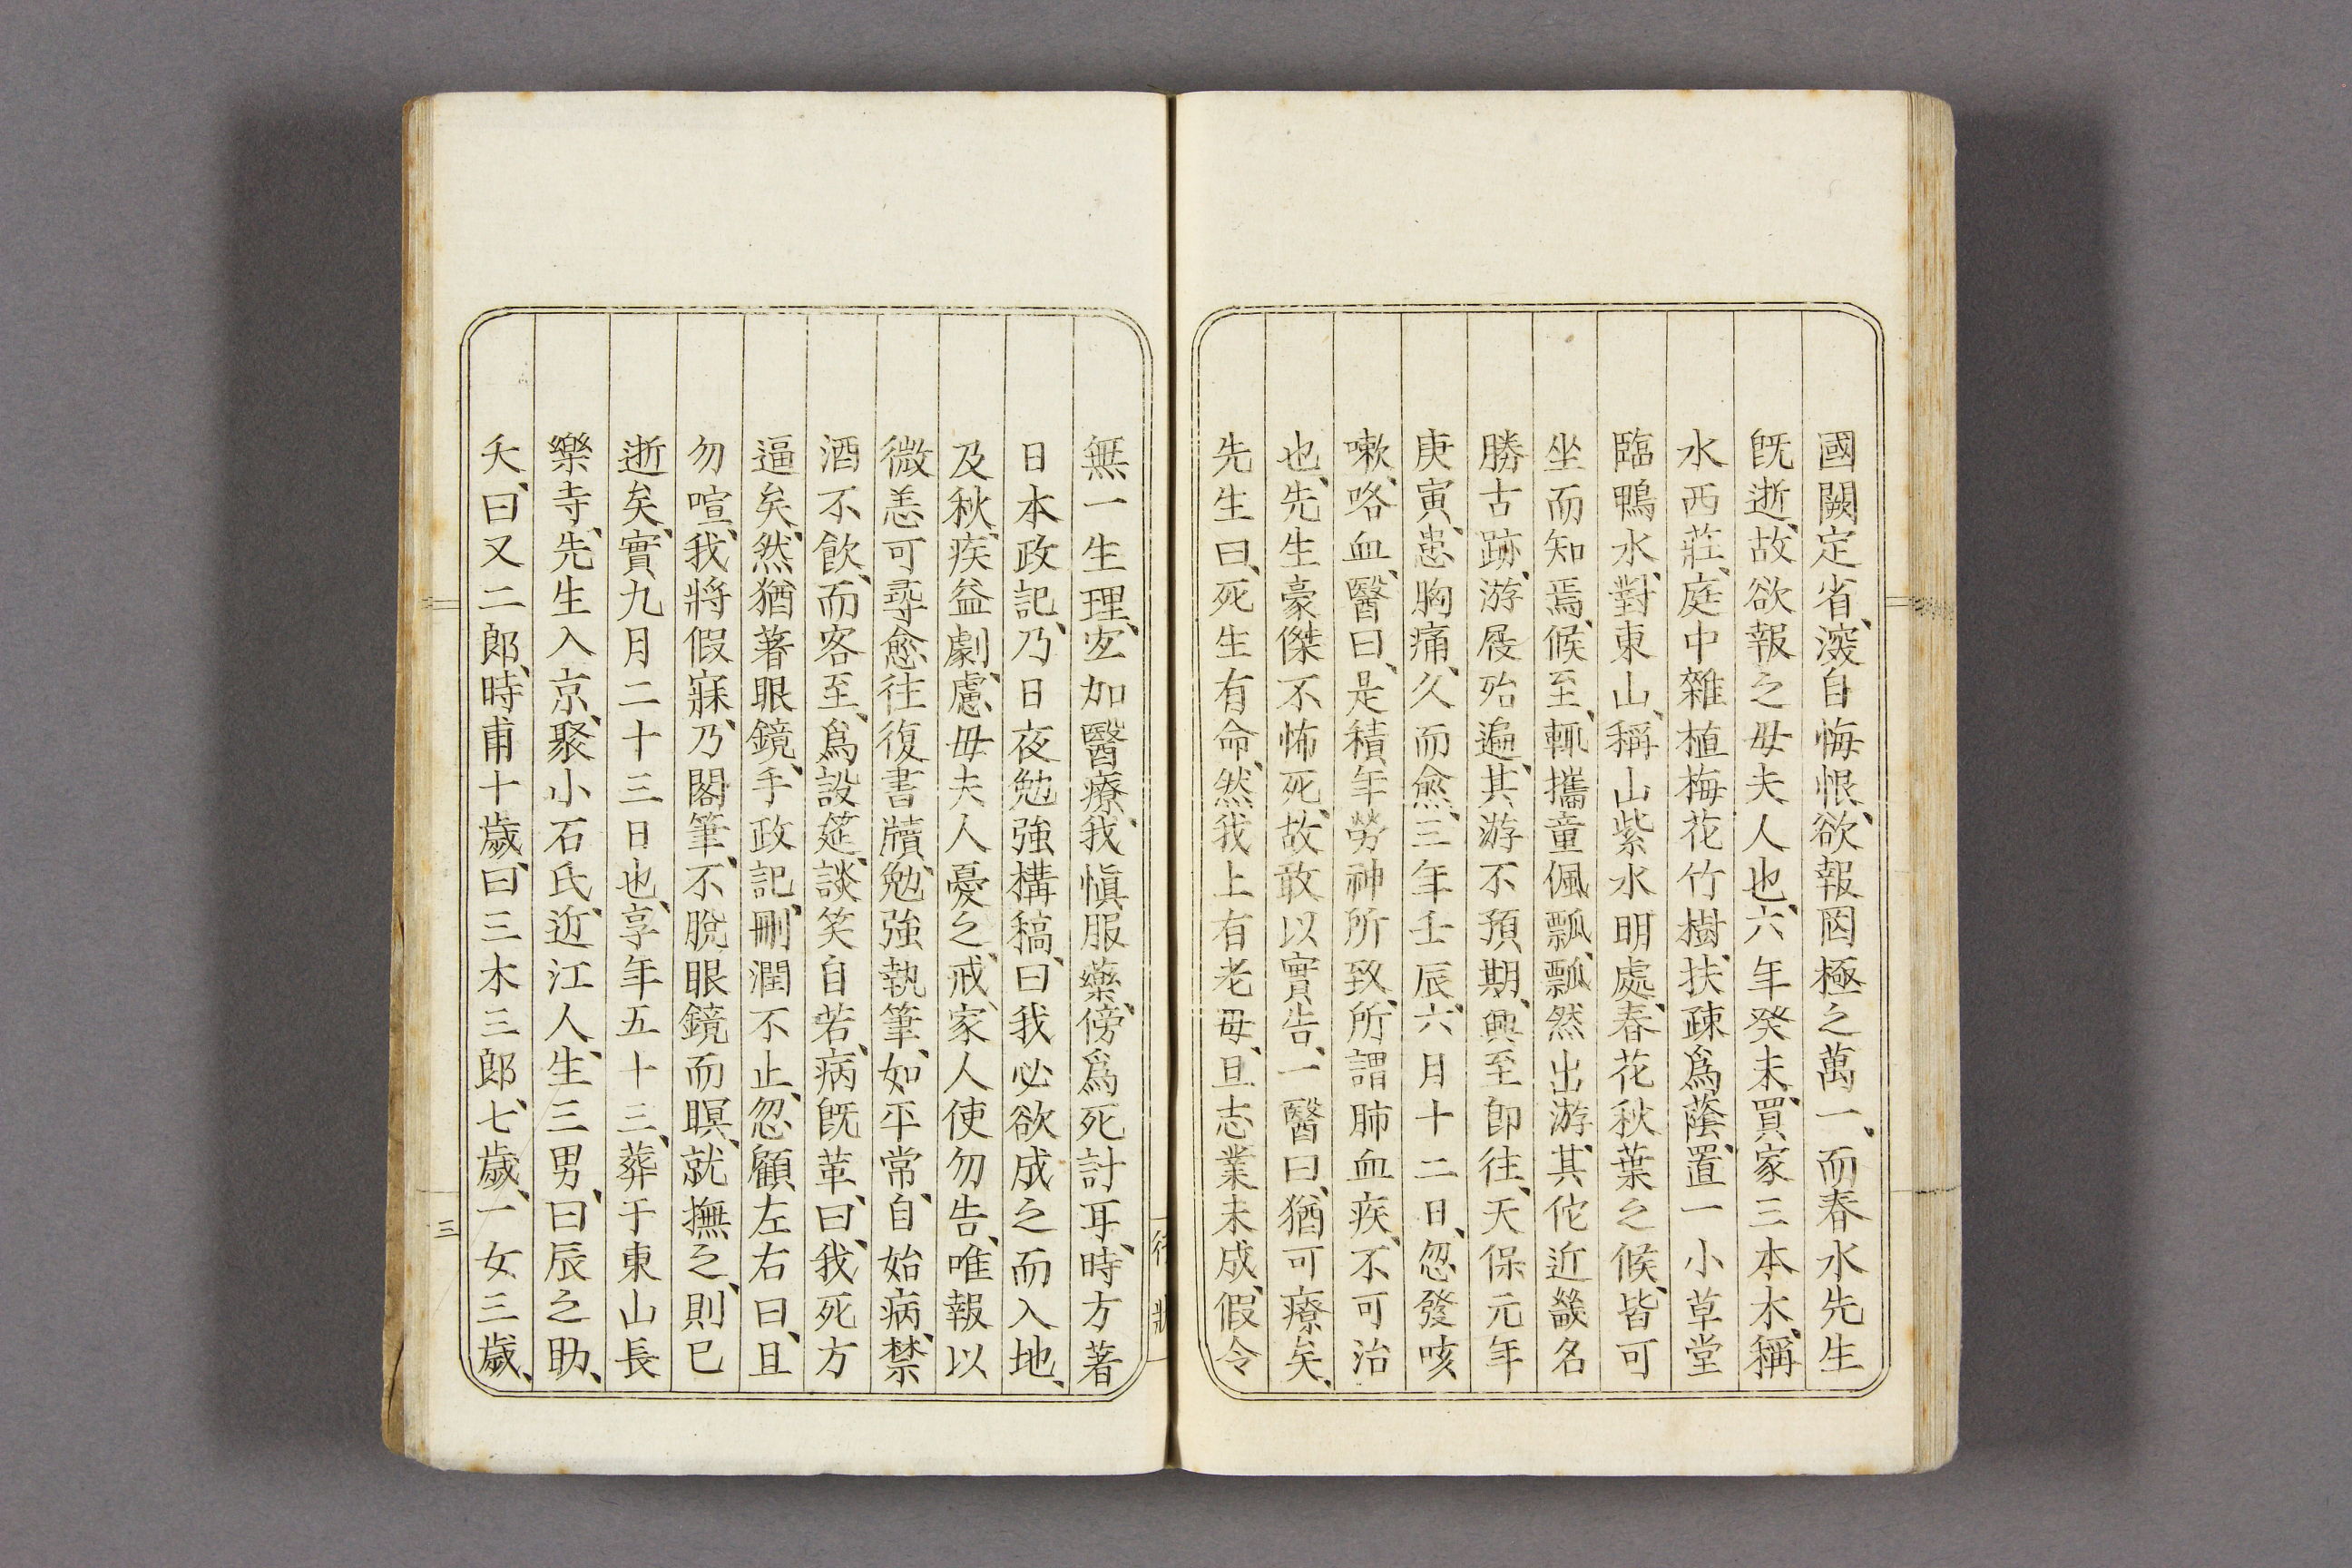 國闕定省、深自悔恨、欲報罔極之萬一、而春水先生
既逝、故欲報之母夫人也、六年癸未、買家三本木、稱
水西莊、庭中雜植梅花竹樹、扶疎爲蔭、置一小草堂
臨鴨水、對東山、稱山紫水明處、春花秋葉之候、皆可
坐而知焉、候至、輒攜童佩瓢、瓢然出游、其佗近畿名
勝古跡、游屐殆遍、其游不預期、興至卽往、天保元年
庚寅、患胸痛、久而愈、三年壬辰、六月十二日、忽發咳
嗽、咯血、醫曰、是積年勞神所致、所謂肺血疾、不可治
也、先生豪傑不怖死、故敢以實告、一醫曰、猶可療矣、
先生曰、死生有命、然我上有老母、且志業未成、假令
無一生理、宜如醫療、我愼服藥、傍爲死計耳、時方著
日本政記、乃日夜勉強構稿、曰我必欲成之而入地、
及秋、疾益劇、慮母夫人憂之、戒家人使勿告、唯報以
微恙可尋愈、往復書牘、勉強執筆、如平常、自始病、禁
酒不飮、而客至、爲設筵、談笑自若、病既革、曰、我死方
逼矣、然猶著眼鏡、手政記、刪潤不止、忽顧左右曰、且
勿喧、我將假寐、乃閣筆、不脫眼鏡而瞑、就撫之、則已
逝矣、實九月二十三日也、享年五十三、葬于東山長
樂寺、先生入京、娶小石氏、近江人、生三男、曰辰之助、
夭、曰又二郎、時甫十歲、曰三木三郎、七歲、一女三歲、
行狀
三